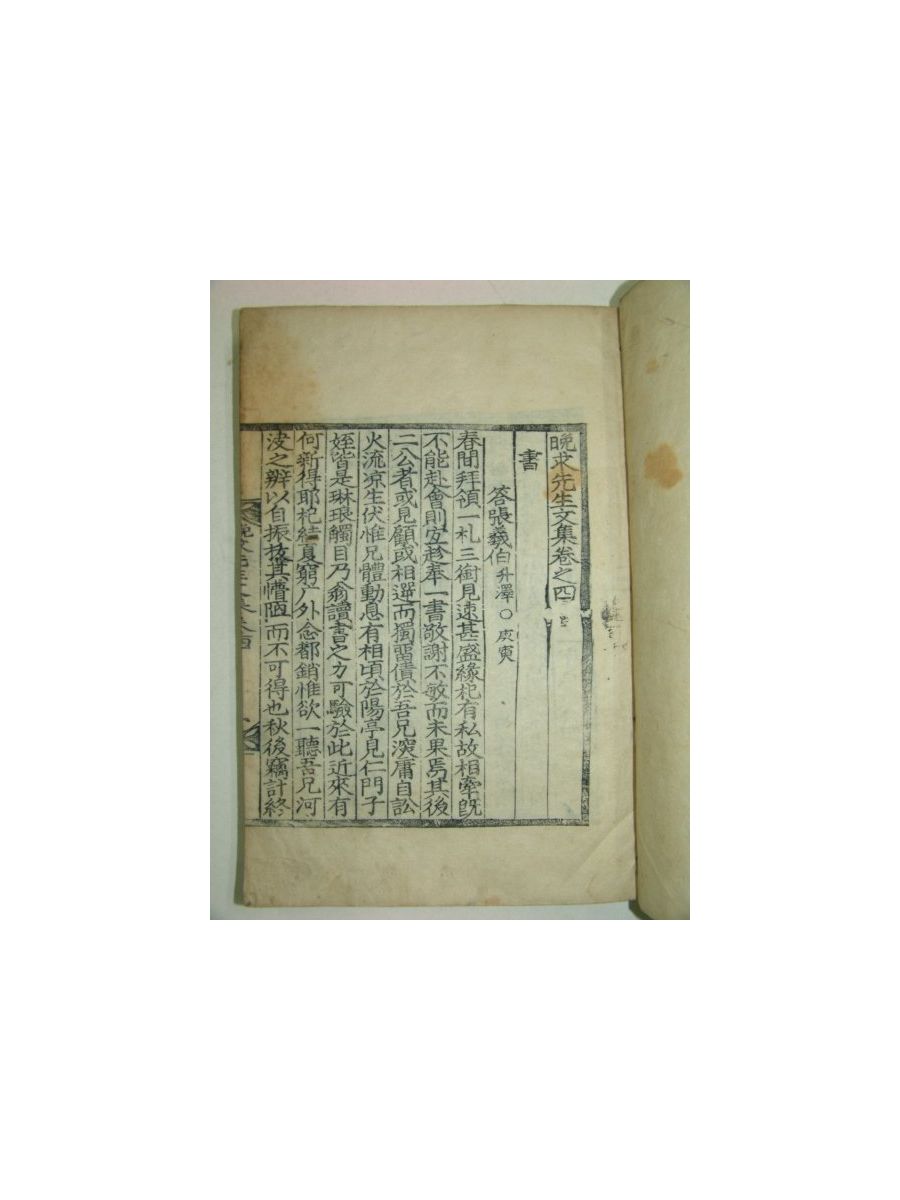 晩求先生文集卷之四
書
答張羲伯升澤○庚寅
春間拜領一札三銜見速甚盛緣𣏌有私故相牽旣
不能赴會則宜趁奉一書敬謝不敏而未果焉其後
二公者或見顧或相選而獨留債於吾兄深庸自訟
火流凉生伏惟兄體動息有相頃於陽亭見仁門子
姪皆是琳琅觸目乃翁讀書之力可驗於此近來有
何新得耶𣏌結夏窮戶外念都銷惟欲一聽吾兄河
決之辨以自振拔其懵陋而不可得也秋後竊計終